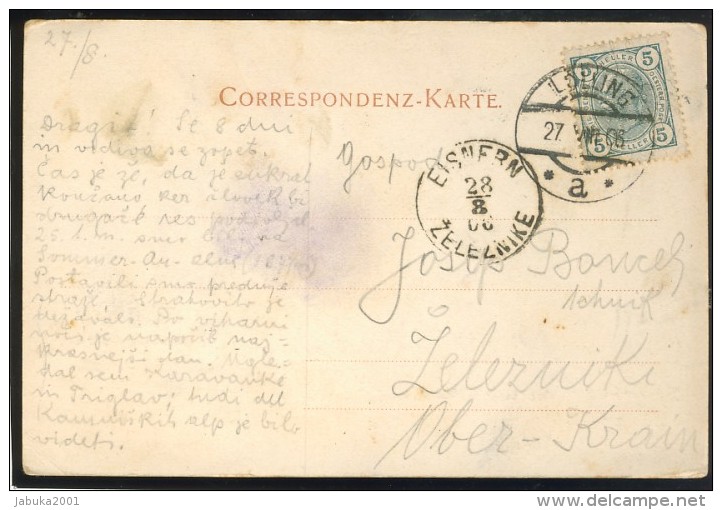 27./8.
CORRESPONDENZ-KARTE.
HELLER
5 5
5 5
LÖLLING
27. VIII. 06
* a *
EISNERN
28
8
06
ŽELEZNIKE
Dragič! Še 8 dni
in vidiva se zopet.
Čas je že, da je enkrat
končano, ker človek bi
drugače res
25. t. m. smo bili na
Postavili smo prednje
straže. Strahovito je
deževalo. Po viharni
noči je napočil naj-
krasnejši dan. Ugle-
dal sem Karavanke
in Triglav; tudi del
Kamniških alp je bilo
videti.
Gospod
Josip
Železniki
Ober-Krain
jabuka2001
www.delcampe.net